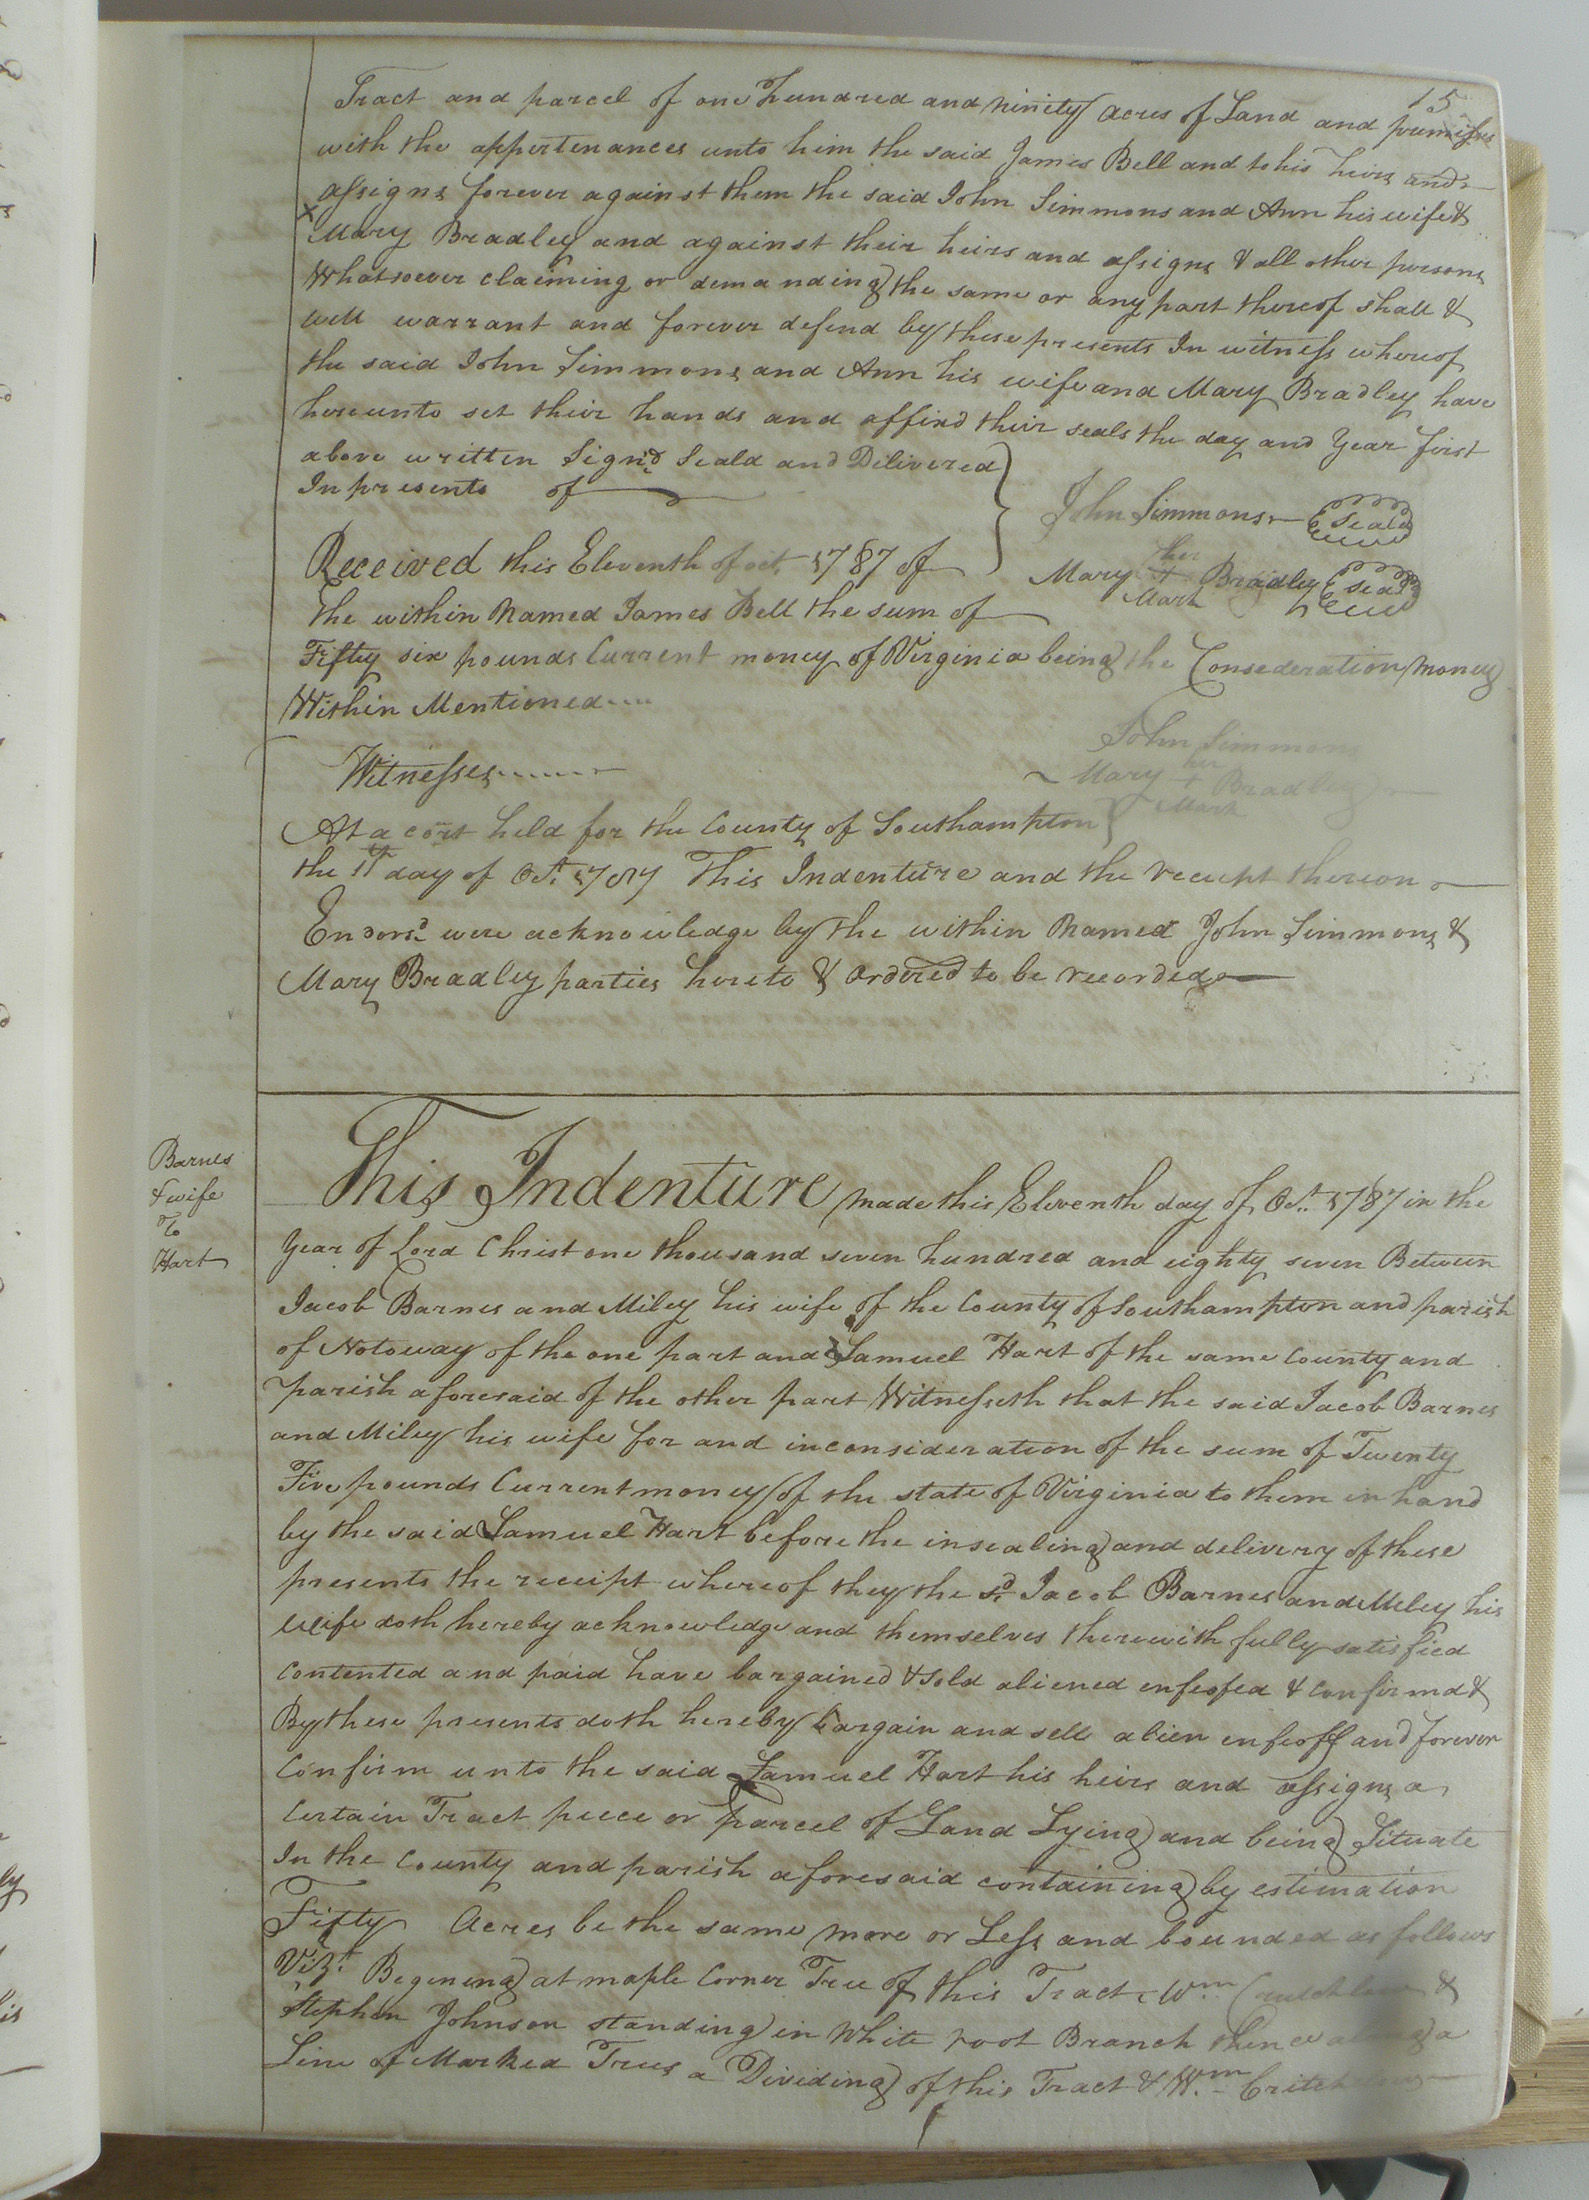 15
Tract and parcel of one hundred and ninety acres of Land and premises
with the appertenances unto him the said James Bell and to his heirs and
assigns forever against them the said John Simmons and Ann his wife &
x Mary Bradley and against their heirs and assigns & all other persons
Whatsoever claiming or demanding the same or any part thereof shall &
will warrant and forever defend by these presents In witness whereof
the said John Simmons and Ann his wife and Mary Bradley have
hereunto set their hands and affixd their seals the day and year first
above written Sign'd Seald and Delivered
In presents of
John Simmons Seal
Received this Eleventh of oct. 1787 of
Mary her + Mark Bradley Seal
the within Named James Bell the sum of
Fifty six pounds Current money of Virginia being the Consederation money
Within Mentioned
John Simmons
Witnesses
Mary her + Mark Bradley
At a cort held for the County of Southampton
the 11th day of Oct. 1787 This Indenture and the receipt thereon
Endorsd were acknowledge by the within Named John Simmons &
Mary Bradley parties hereto & ordered to be recorded
Barnes
& wife
To
Hart
This Indenture made this Eleventh day of Oct. 1787 in the
Year of Lord Christ one thousand seven hundred and eighty seven Between
Jacob Barnes and Miley his wife of the County of Southampton and parish
of Notoway of the one part and Samuel Hart of the same County and
parish aforesaid of the other part Witnesseth that the said Jacob Barnes
and Miley his wife for and in consideration of the sum of Twenty
Five pounds Current money of the state of Virginia to them in hand
by the said Samuel Hart before the insealing and delivery of these
presents the receipt whereof they the sd. Jacob Barnes and Miley his
wife doth hereby acknowledge and themselves therewith fully satisfied
contented and paid have bargained & sold aliened enfeofed & confirmd &
By these presents doth hereby bargain and sell alien enfeoff and forever
Confirm unto the said Samuel Hart his heirs and assigns a
Certain Tract peece or parcel of Land Lying and being Situate
In the County and parish aforesaid containing by estimation
Fifty Acres be the same more or Less and bounded as follows
Vizt. Begening at maple Corner Tree of this Tract Wm &
Stephen Johnson standing in White root Branch thence along a
Line of Marked Trees a Dividing of this Tract & Wm.